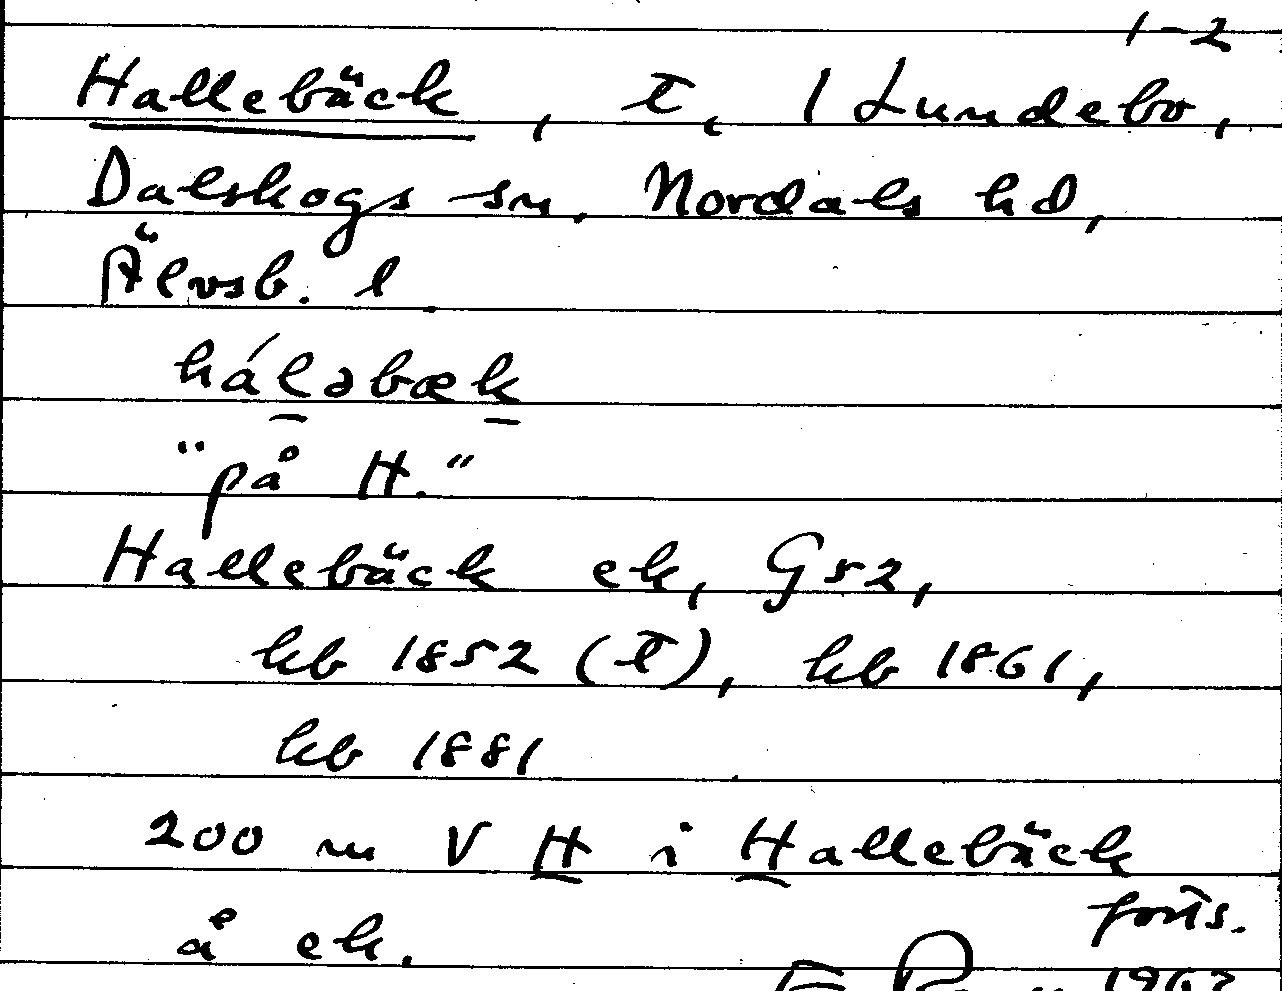 1-2
Hallebäck, t, 1 Lundebo,
Dalskogs sn. Nordals hd,
Älvsb. l
háləbæk
"på H."
Hallebäck ek, G52,
hb 1852 (t), hb 1861,
hb 1881
200 m V H i Hallebäck
forts.
å ek.